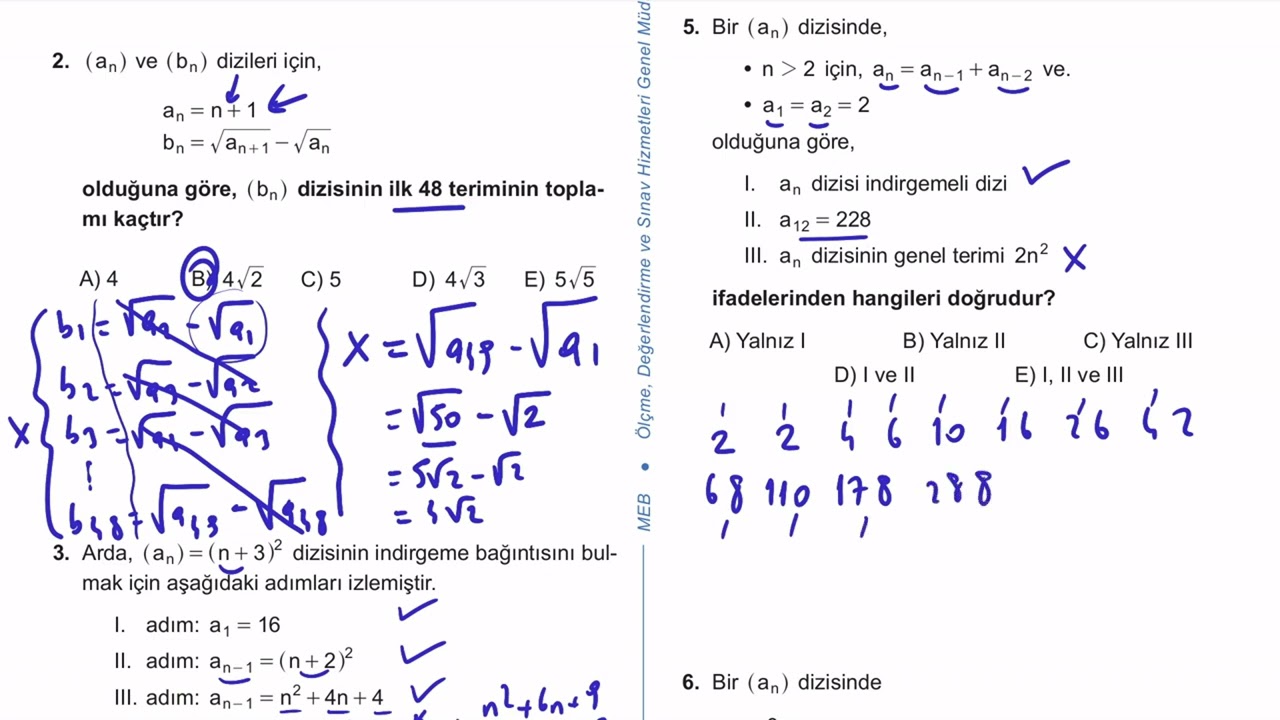 2. (aₙ) ve (bₙ) dizileri için,
aₙ = n + 1
bₙ = √aₙ₊₁ − √aₙ
olduğuna göre, (bₙ) dizisinin ilk 48 teriminin topla-
mı kaçtır?
A) 4 B) 4√2 C) 5 D) 4√3 E) 5√5
b₁ = √a₂ − √a₁
b₂ = √a₃ − √a₂
b₃ = √a₄ − √a₃
b₄₈ = √a₄₉ − √a₄₈
x
x = √a₄₉ − √a₁
= √50 − √2
= 5√2 − √2
= 4√2
3. Arda, (aₙ) = (n + 3)² dizisinin indirgeme bağıntısını bul-
mak için aşağıdaki adımları izlemiştir.
I. adım: a₁ = 16
II. adım: aₙ₋₁ = (n + 2)²
III. adım: aₙ₋₁ = n² + 4n + 4
n² + 6n + 9
MEB • Ölçme, Değerlendirme ve Sınav Hizmetleri Genel Müd
5. Bir (aₙ) dizisinde,
• n > 2 için, aₙ = aₙ₋₁ + aₙ₋₂ ve.
• a₁ = a₂ = 2
olduğuna göre,
I. aₙ dizisi indirgemeli dizi
II. a₁₂ = 228
III. aₙ dizisinin genel terimi 2n²
ifadelerinden hangileri doğrudur?
A) Yalnız I B) Yalnız II C) Yalnız III
D) I ve II E) I, II ve III
2 2 4 6 10 16 26 42
68 110 178 288
6. Bir (aₙ) dizisinde